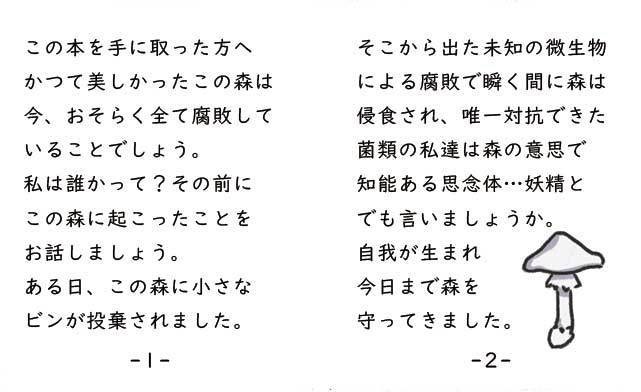 この本を手に取った方へ
かつて美しかったこの森は
今、おそらく全て腐敗して
いることでしょう。
私は誰かって？その前に
この森に起こったことを
お話しましょう。
ある日、この森に小さな
ビンが投棄されました。
-1-
そこから出た未知の微生物
による腐敗で瞬く間に森は
侵食され、唯一対抗できた
菌類の私達は森の意思で
知能ある思念体…妖精と
でも言いましょうか。
自我が生まれ
今日まで森を
守ってきました。
-2-